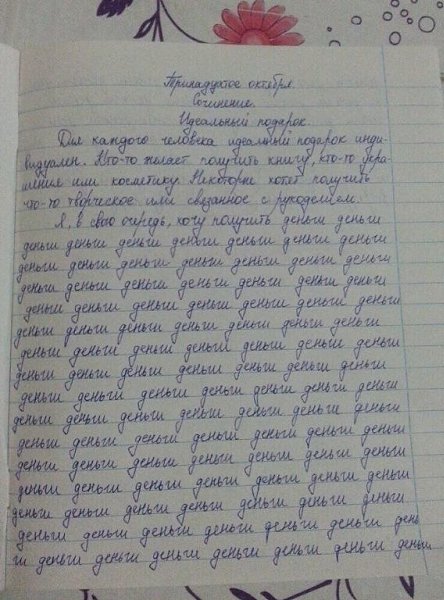 Тринадцатое октября.
Сочинение.
Идеальный подарок.
Для каждого человека идеальный подарок инди-
видуален. Кто-то желает получить книгу, кто-то укра-
шение или косметику. Некоторые хотят получить
что-то творческое или связанное с рукоделием.
Я, в свою очередь, хочу получить деньги деньги
деньги деньги деньги деньги деньги деньги деньги
деньги деньги деньги деньги деньги деньги деньги
деньги деньги деньги деньги деньги деньги деньги
деньги деньги деньги деньги деньги деньги деньги
деньги деньги деньги деньги деньги деньги деньги
деньги деньги деньги деньги деньги деньги деньги
деньги деньги деньги деньги деньги деньги деньги
деньги деньги деньги деньги деньги деньги деньги
деньги деньги деньги деньги деньги деньги деньги
деньги деньги деньги деньги деньги деньги деньги
деньги деньги деньги деньги деньги деньги деньги
деньги деньги деньги деньги деньги деньги деньги
деньги деньги деньги деньги деньги деньги деньги
деньги деньги деньги деньги деньги деньги день
ги деньги деньги деньги деньги деньги деньги деньги